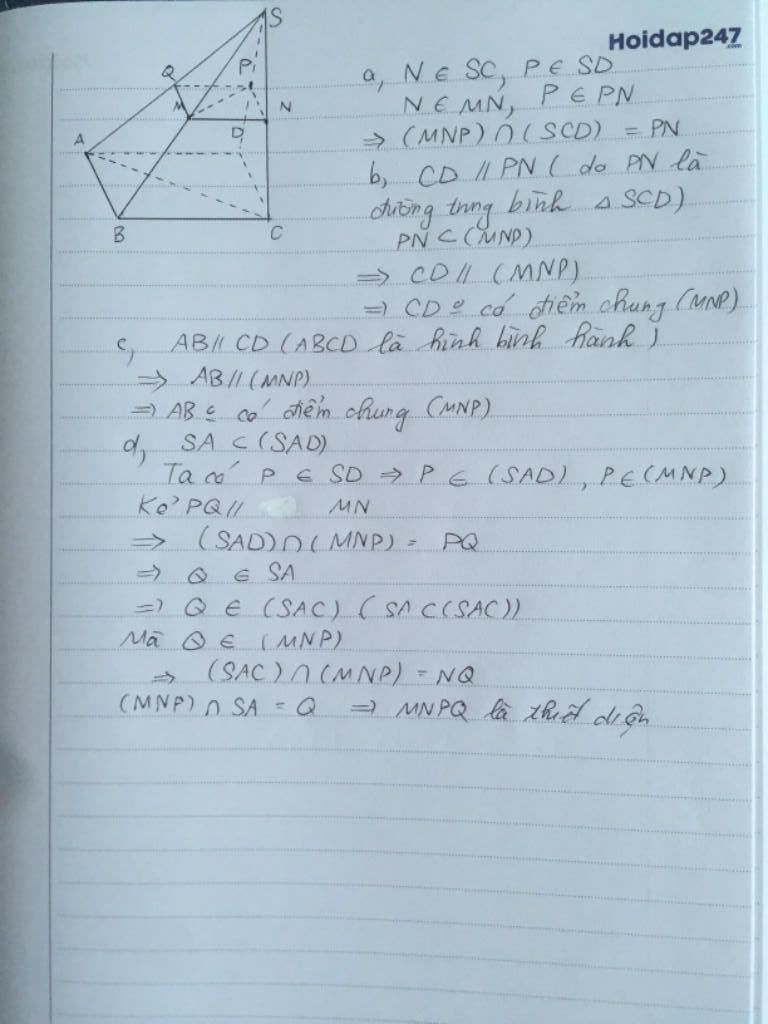 Hoidap247
.com
S
Q
P
M
N
A
D
B
C
a, N ∈ SC, P ∈ SD
N ∈ MN, P ∈ PN
⇒ (MNP) ∩ (SCD) = PN
b, CD // PN ( do PN là
đường trung bình △ SCD)
PN ⊂ (MNP)
⇒ CD // (MNP)
⇒ CD có điểm chung (MNP)
c, AB // CD (ABCD là hình bình hành)
⇒ AB // (MNP)
⇒ AB có điểm chung (MNP)
d, SA ⊂ (SAD)
Ta có P ∈ SD ⇒ P ∈ (SAD), P ∈ (MNP)
Kẻ PQ // MN
⇒ (SAD) ∩ (MNP) = PQ
⇒ Q ∈ SA
⇒ Q ∈ (SAC) (SA ⊂ (SAC))
Mà Q ∈ (MNP)
⇒ (SAC) ∩ (MNP) = NQ
(MNP) ∩ SA = Q ⇒ MNPQ là thiết diện